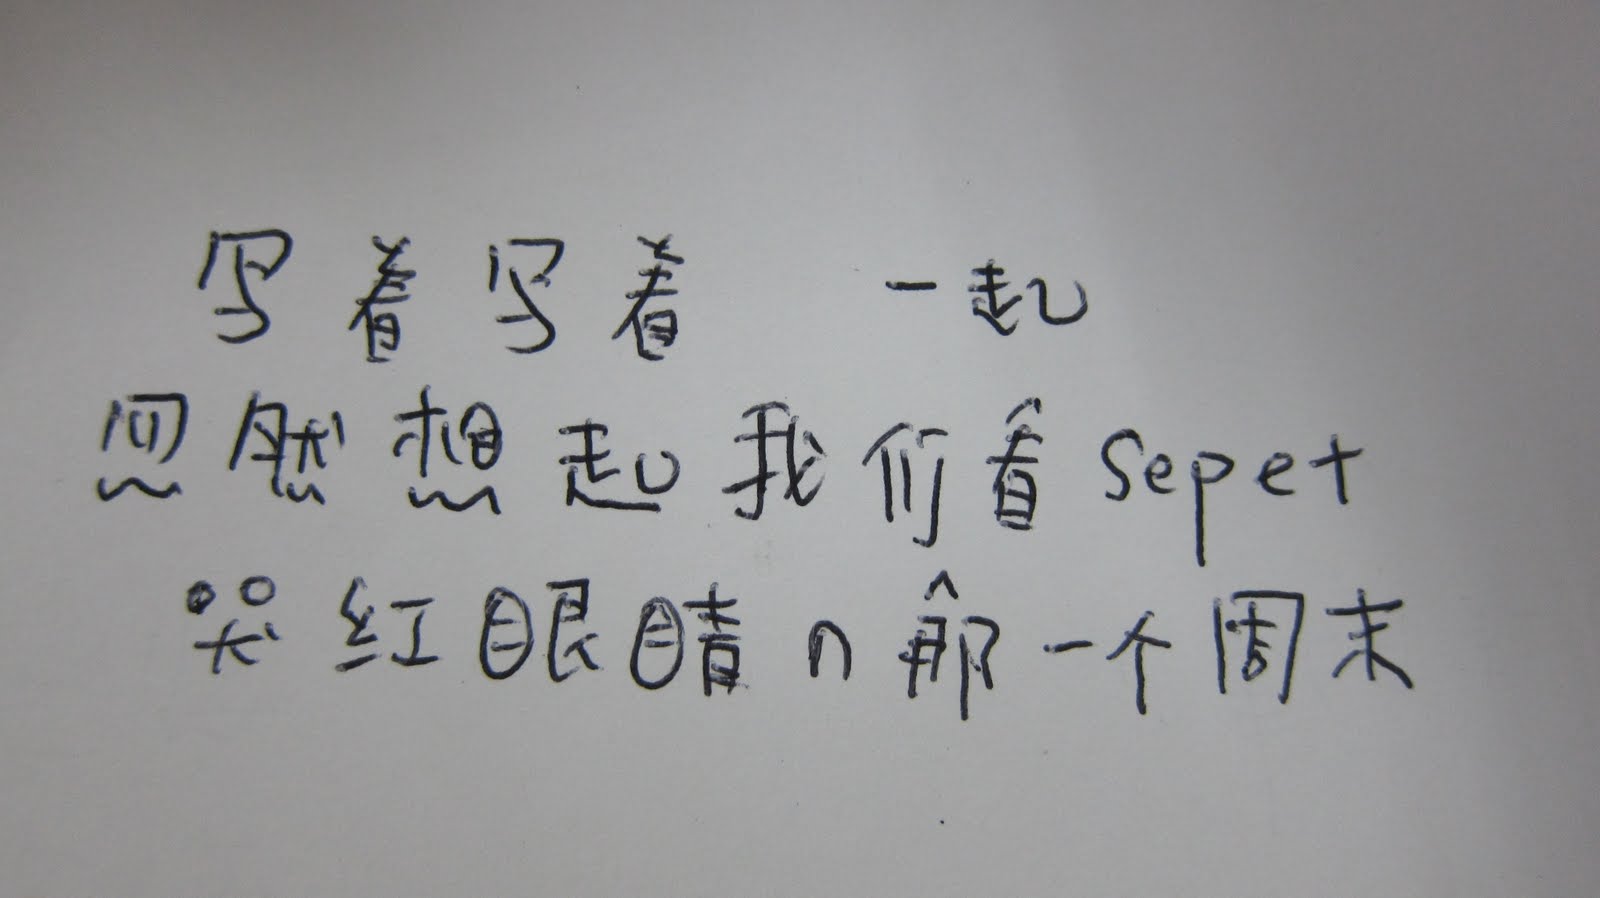 写着写着 一起
忽然想起我们看sepet
哭红眼睛n那一个周末